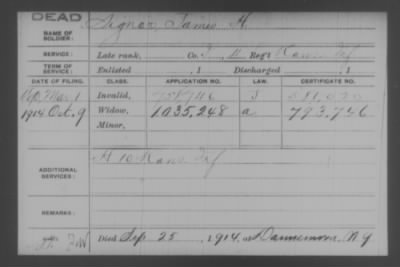 DEAD
NAME OF SOLDIER: Signor, James H.
SERVICE: Late rank, Co. Reg't
TERM OF SERVICE: Enlisted , 1 Discharged , 1
DATE OF FILING. CLASS. APPLICATION NO. LAW. CERTIFICATE NO.
Invalid,
1914 Oct. 9 Widow, 1035.248 a 793.746
Minor,
ADDITIONAL SERVICES: H 10 Kans Inf
REMARKS:
Died Sep 25, 1914, at Dannemora, N.Y.